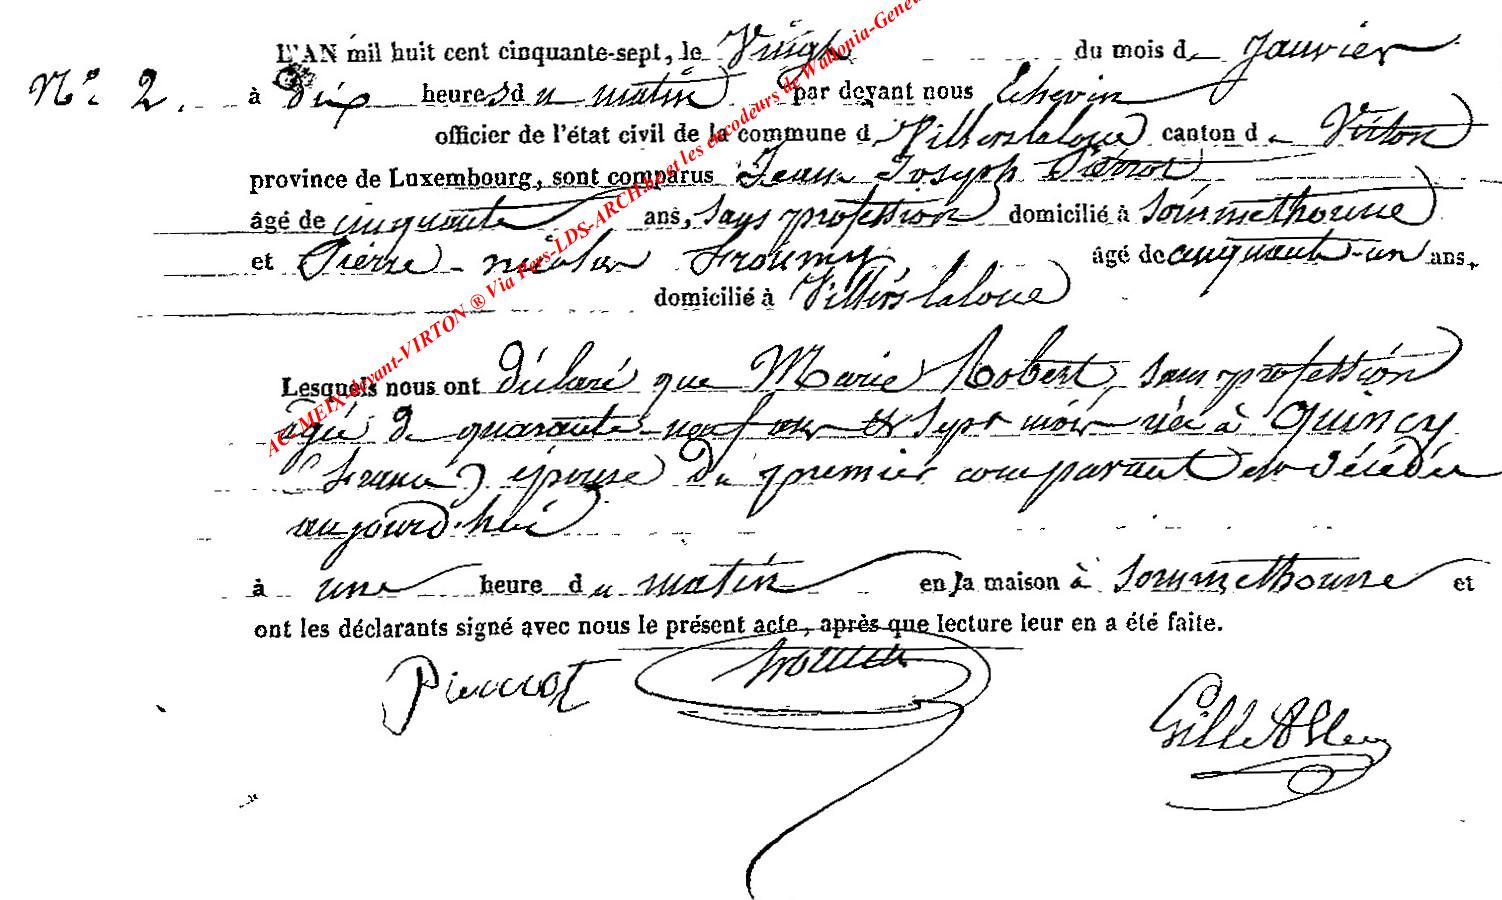 L'AN mil huit cent cinquante-sept, le Vingt du mois de Janvier
N° 2. à Dix heures du matin par devant nous Echevin
officier de l'état civil de la commune de Villers laloue canton de Virton
province de Luxembourg, sont comparus Jean Joseph Pierrot
âgé de cinquante ans, sans profession domicilié à Sommethonne
et Pierre-nicolas âgé de cinquante-un ans,
domicilié à Villers laloue
Lesquels nous ont déclaré que Marie Robert, sans profession
agée de quarante-neuf ans et sept mois née à Quincy
(france) épouse du premier comparant est décédée
aujourd'hui
à une heure du matin en la maison à Sommethonne et
ont les déclarants signé avec nous le présent acte, après que lecture leur en a été faite.
Pierrot
AC-MEIX-devant-VIRTON ® Via Pers-LDS-ARCH.be et les encodeurs de Wallonia-Gene